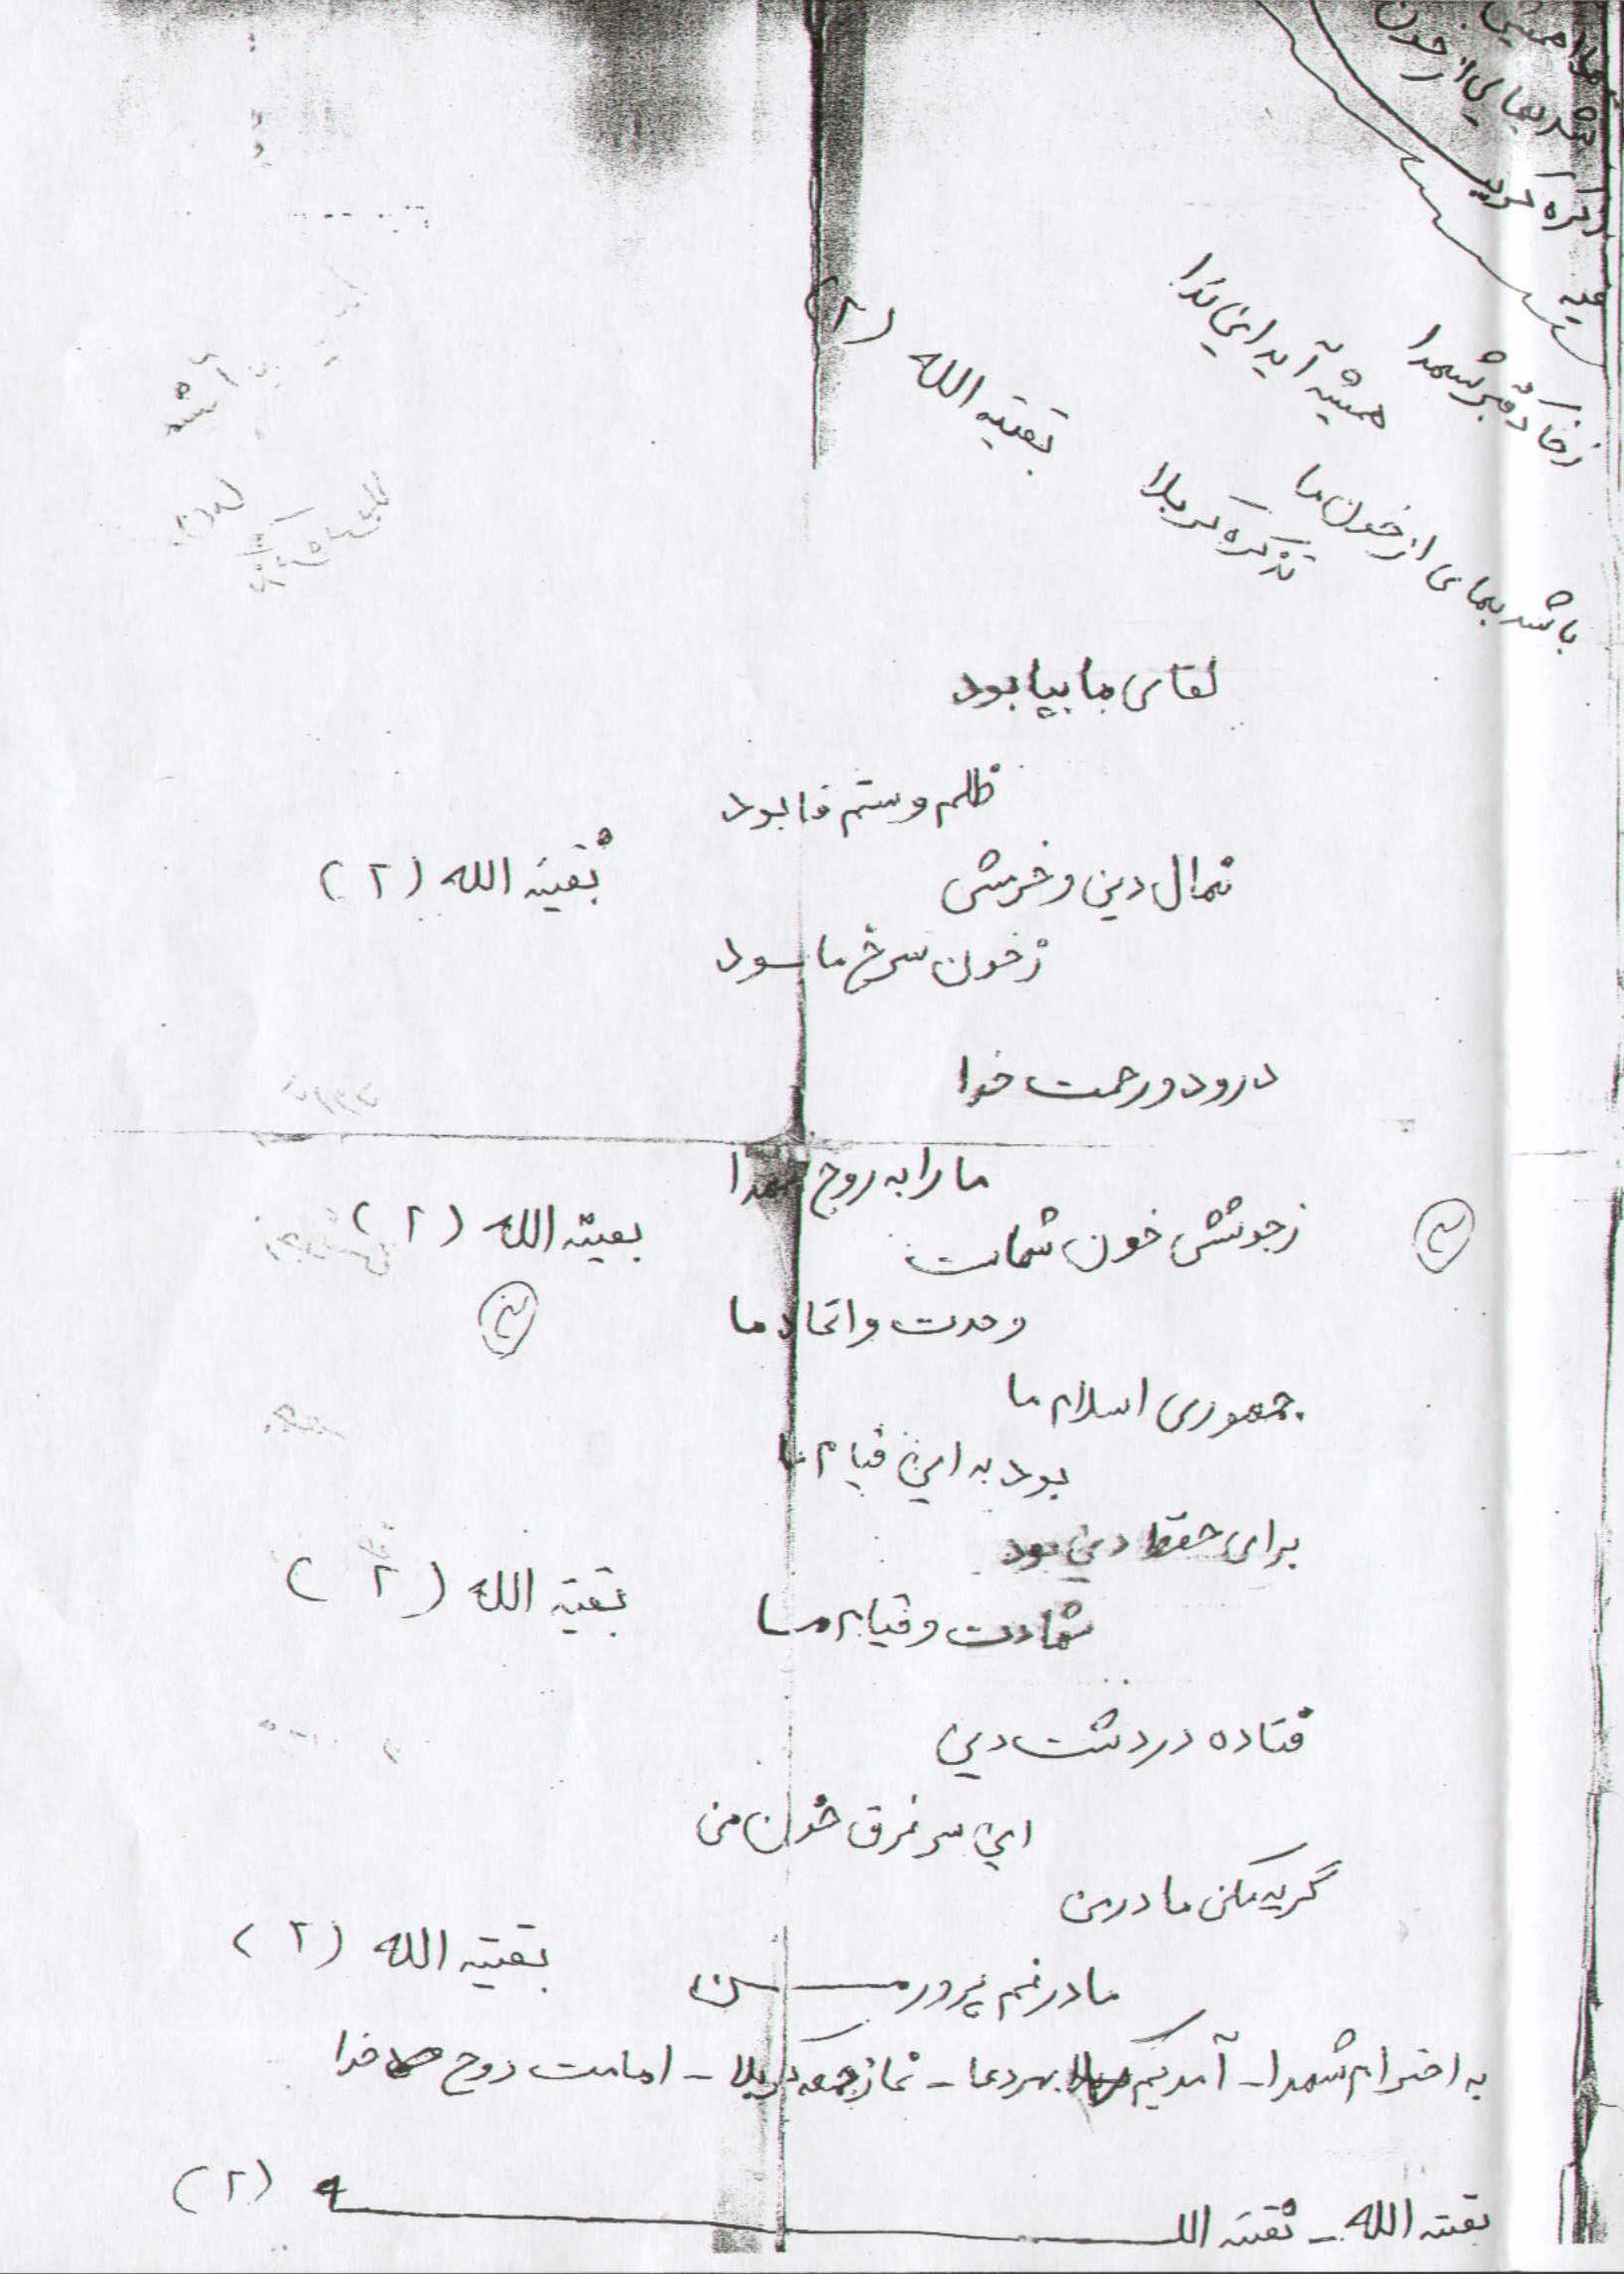 باشد بهای از خون
تذکره کربلا
ز خاک قبر شهدا
همیشه آید این ندا
بقیته الله (۲)
باشد بهای از خون ما
تذکره کربلا
لقای ما بپا بود
ظلم و ستم فنا بود
نهال دین و خرمش
بقیته الله (۲)
ز خون سرخ ما بود
درود و رحمت خدا
ما را به روح شهدا
ز جوشش خون شماست
بقیته الله (۲)
وحدت و اتحاد ما
جمهوری اسلام ما
بود به این قیام ما
برای حفظ دین بود
شهادت و قیام ما
بقیته الله (۲)
فتاده در دشت دین
این سر غرق خون من
گریه مکن مادر من
بقیته الله (۲)
مادر غم پرور من
به احترام شهدا - آمدیم بهر دعا - نماز جمعه کربلا - امامت روح خدا
بقیته الله - بقیته الله (۲)